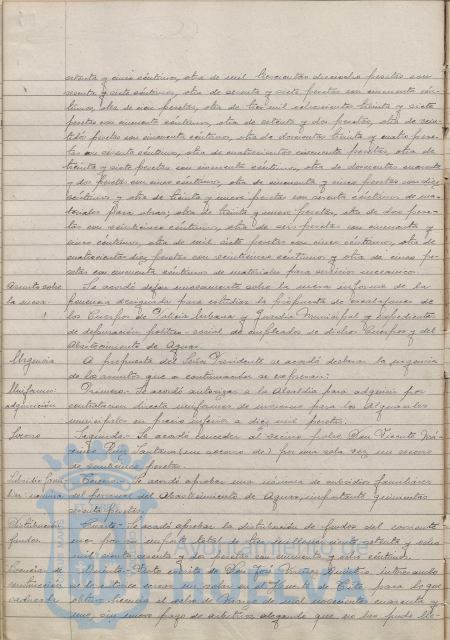 setenta y cinco céntimos, otra de mil trescientas dieciocho pesetas con
sesenta y siete céntimos, otra de sesenta y siete pesetas con cincuenta cén-
timos, otra de pesetas, otra de tres mil ochocientas treinta y siete
pesetas con cincuenta céntimos, otra de setenta y dos pesetas, otra de
pesetas con cincuenta céntimos, otra de doscientas treinta y cuatro pese-
tas con céntimos, otra de cuatrocientas cincuenta pesetas, otra de
treinta y siete pesetas con cincuenta céntimos, otra de doscientas cuarenta
y dos pesetas con cinco céntimos, otra de cincuenta y cinco pesetas con diez
céntimos y otra de treinta y cinco pesetas con sesenta céntimos de ma-
teriales para obras; otra de treinta y nueve pesetas, otra de dos pese-
tas con veinticinco céntimos, otra de seis pesetas con cincuenta y
cinco céntimos, otra de mil siete pesetas con cinco céntimos, otra de
cuatrocientas diez pesetas con veinticinco céntimos y otra de cinco pe-
setas con cincuenta céntimos de materiales para servicio mecánico.
Asunto sobre
la mesa
Se acordó dejar nuevamente sobre la mesa informe de la
ponencia designada para estudiar la propuesta de escalafones de
los Cuerpos de Policía Urbana y Guardia Municipal y expediente
de depuración político-social de empleados de dichos Cuerpos y del
Abastecimiento de Aguas.
Urgencia
A propuesta del Señor Presidente se acordó declarar la urgencia
de los asuntos que a continuación se expresan:
Uniformes
adquisición
Primero.- Se acordó autorizar a la Alcaldía para adquirir por
contratación directa uniformes de invierno para los
municipales en precio inferior a diez mil pesetas.
Socorro
Segundo.- Se acordó conceder al vecino pobre Don Vicente
Ruiz Santana por una sola vez, un socorro
de pesetas.
Subsidio fami-
liar nómina
Tercero.- Se acordó aprobar una nómina de subsidio familiar
del personal del Abastecimiento de Aguas, importante quinientas
pesetas.
Distribución
fondos
Cuarto.- Se acordó aprobar la distribución de fondos del corriente
mes por un importe total de
mil ciento sesenta y dos pesetas con cincuenta y céntimos.
Quinto.- Visto escrito de Don José interesando
se le autorice cercar un solar en el para lo que
obtuvo licencia el ocho de Marzo de mil novecientos cuarenta y
uno, sin nuevo pago de arbitrios, alegando que no pudo lle-
Ayuntamiento de
HUELVA